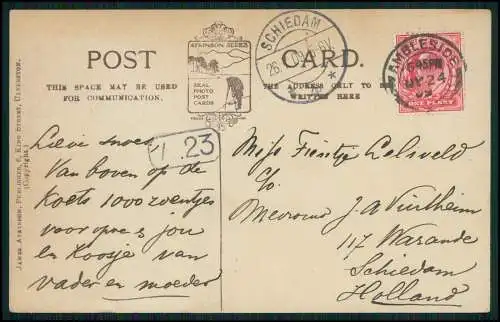 POST
CARD.
ATKINSON SERIES
REAL
PHOTO
POST
CARDS
THIS SPACE MAY BE USED
FOR COMMUNICATION.
THE ADDRESS ONLY TO BE
WRITTEN HERE
JAMES ATKINSON, PUBLISHER, 6, KING STREET, ULVERSTON.
(Copyright.)
SCHIEDAM
AMBLESIDE
6.45PM
24
ONE PENNY
1.23
Lieve snoes
Van boven op de
Koets 1000 zoentjes
voor opoe, jou
en Koosje van
vader en moeder
Miss
c/o.
Mevrouw J. A
117 Warande
Schiedam
Holland